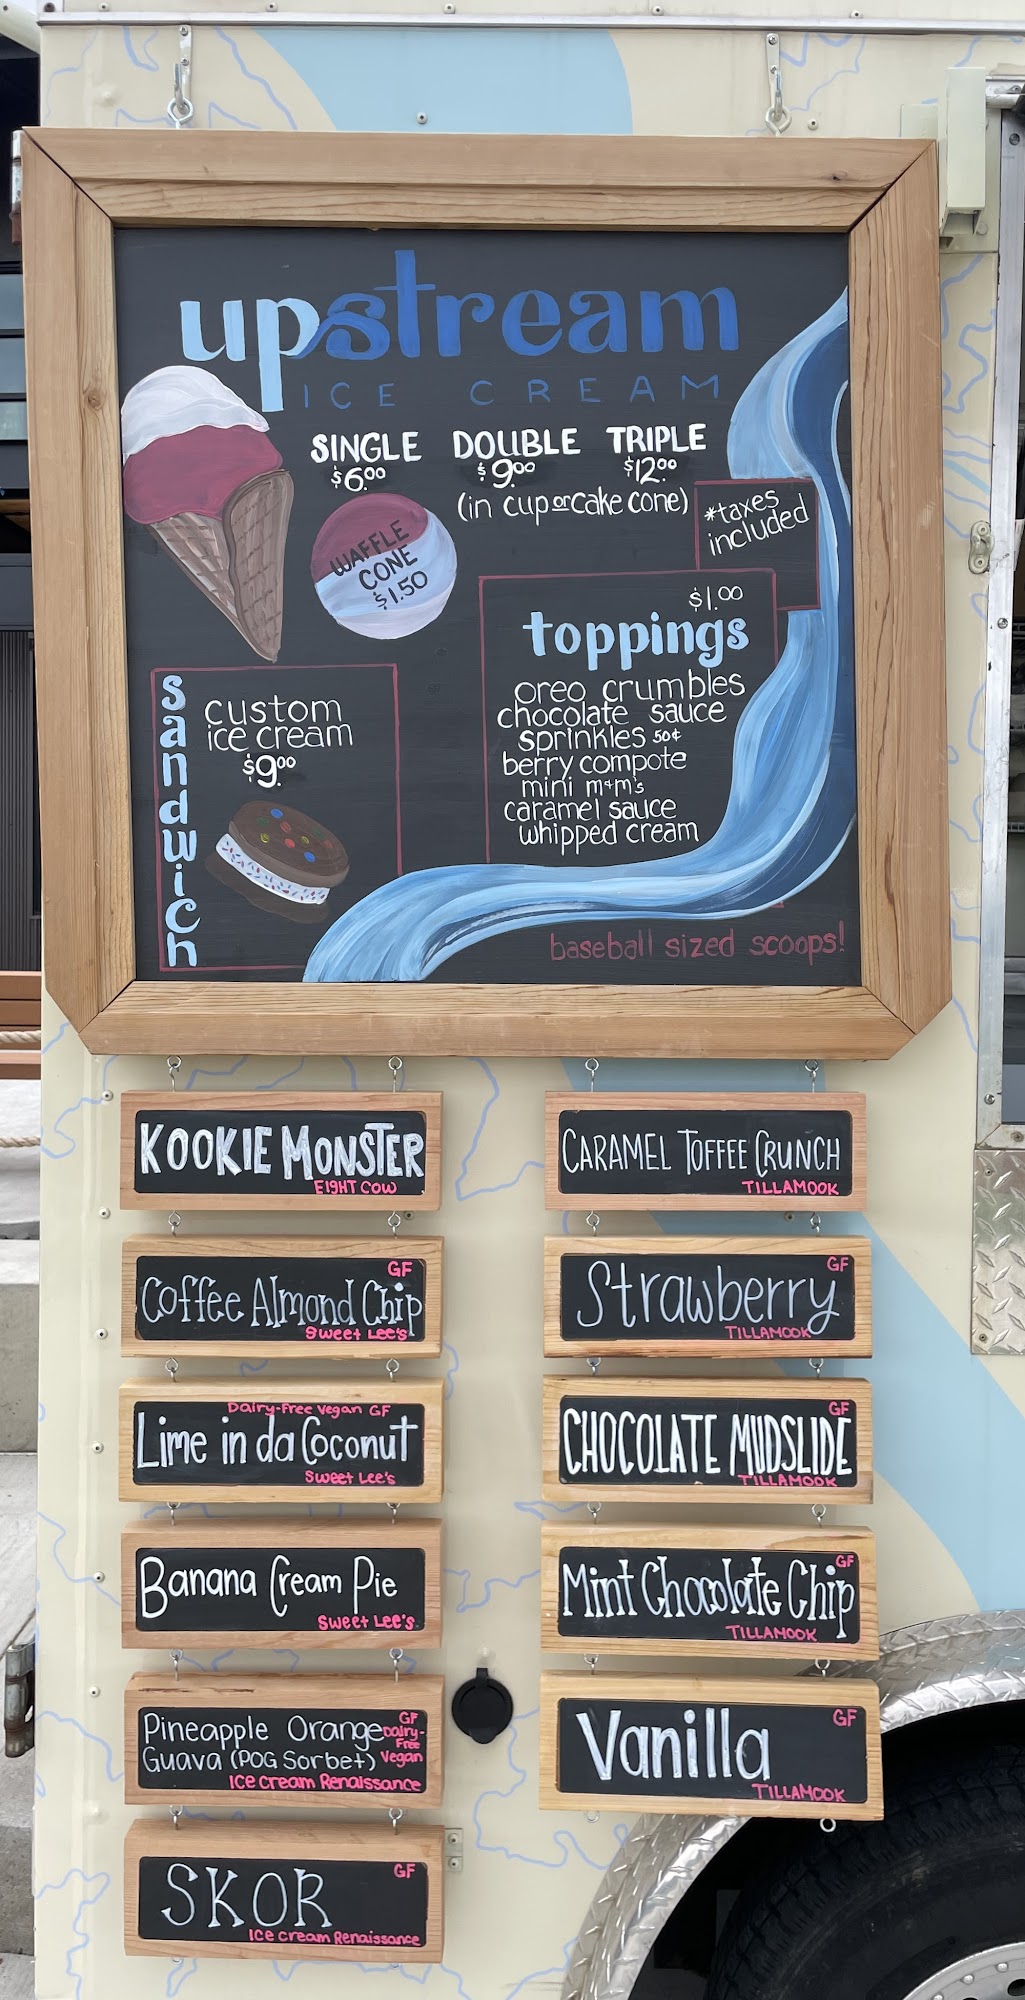 upstream
ICE CREAM
SINGLE DOUBLE TRIPLE
$6.00 $9.00 $12.00
(in cup or cake cone)
*taxes
included
WAFFLE
CONE
$1.50
$1.00
toppings
oreo crumbles
chocolate sauce
sprinkles 50¢
berry compote
mini m+m's
caramel sauce
whipped cream
sandwich
custom
ice cream
$9.00
baseball sized scoops!
KOOKIE MONSTER
EIGHT COW
GF
Coffee Almond Chip
Sweet Lee's
Dairy-Free Vegan GF
Lime in da Coconut
Sweet Lee's
Banana Cream Pie
Sweet Lee's
Pineapple Orange GF Dairy-Free
Guava (POG Sorbet) Vegan
Ice Cream Renaissance
GF
SKOR
Ice cream Renaissance
CARAMEL TOFFEE CRUNCH
TILLAMOOK
GF
Strawberry
TILLAMOOK
GF
CHOCOLATE MUDSLIDE
TILLAMOOK
GF
Mint Chocolate Chip
TILLAMOOK
GF
Vanilla
TILLAMOOK